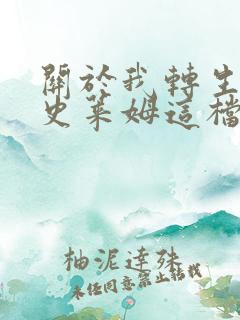 關於我轉生
史萊姆這檔
柚泥達殊
未经同意禁止转载